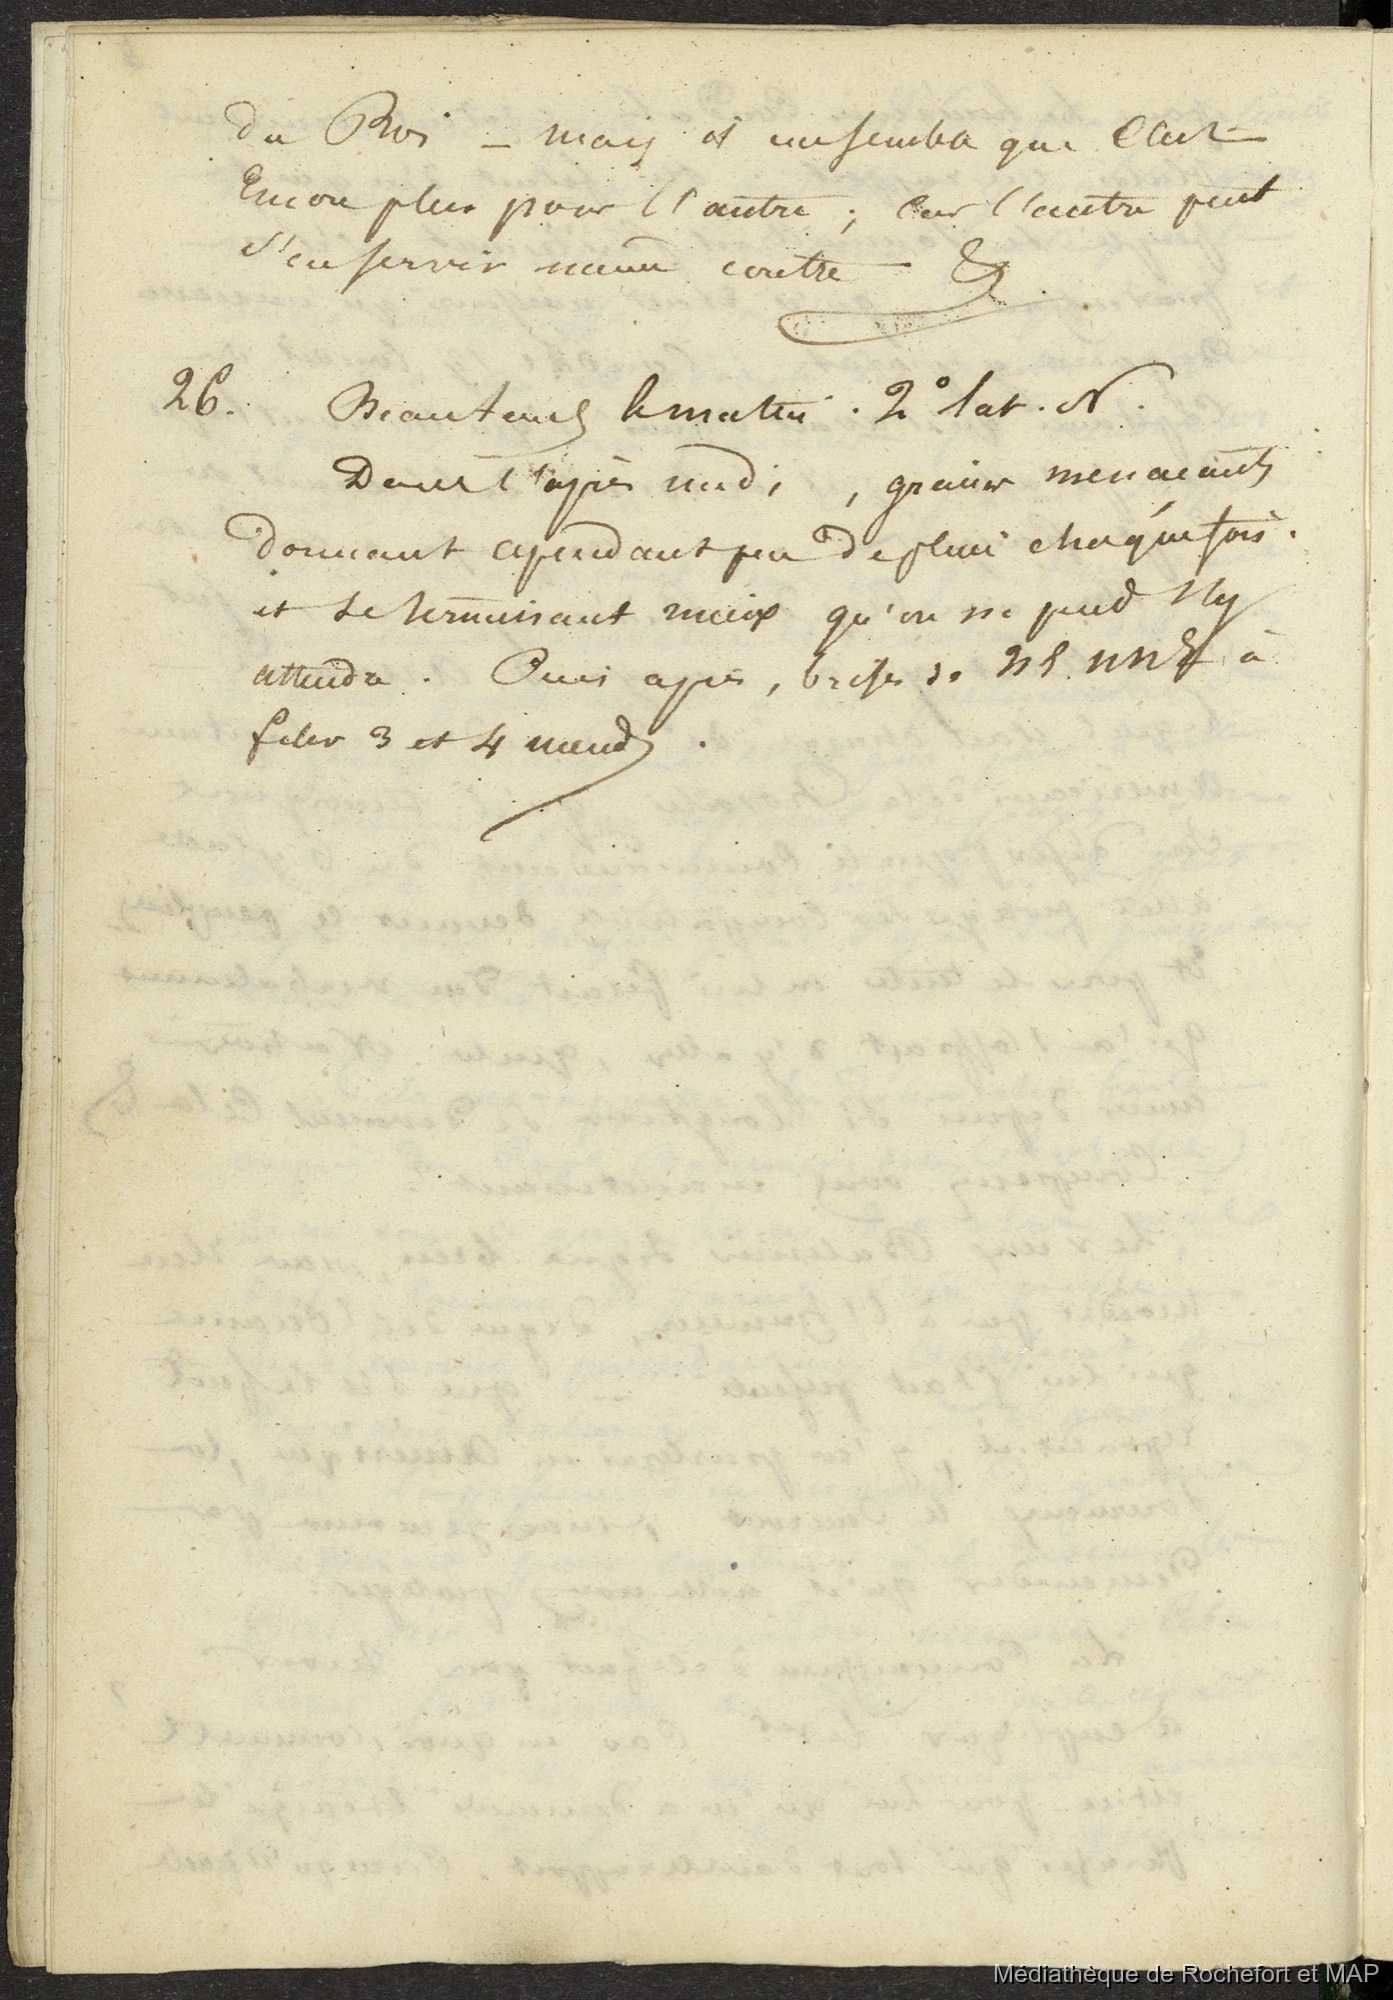 du Roi – mais il me semble que C'est
Encore plus pour l'autre ; Car l'autre peut
s'en servir même contre
26. Beau tems le matin . 2° lat. N.
Dans l'après midi , grains menacants
donnant cependant peu de pluie chaque fois.
et se terminant mieux qu'on ne peud s'y
attendre . Puis après , brises de NE NNE à
filer 3 et 4 nœuds .
Médiathèque de Rochefort et MAP